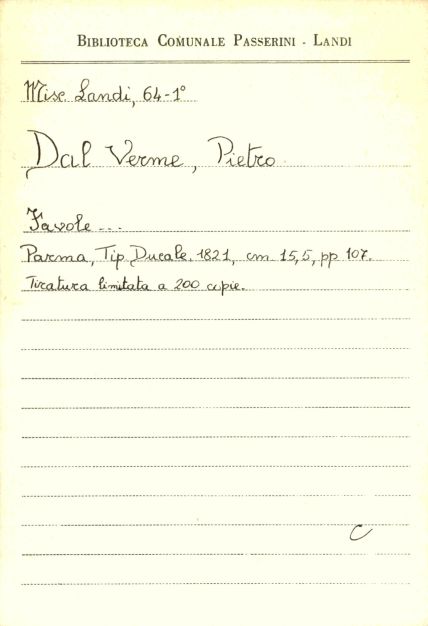 BIBLIOTECA COMUNALE PASSERINI - LANDI
Misc. Landi, 64-1°
Dal Verme, Pietro
Favole...
Parma, Tip. Ducale. 1821, cm. 15,5, pp 107.
Tiratura limitata a 200 copie.
C